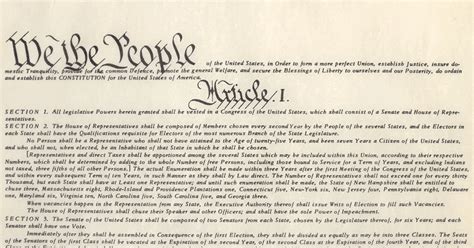 We the People of the United States, in Order to form a more perfect Union, establish Justice, insure do-
mestic Tranquility, provide for the common Defence, promote the general Welfare, and secure the Blessings of Liberty to ourselves and our Posterity, do ordain
and establish this CONSTITUTION for the United States of America.
Article. I.
SECTION 1. All legislative Powers herein granted shall be vested in a Congress of the United States, which shall consist of a Senate and House of Repre-
sentatives.
SECTION 2. The House of Representatives shall be composed of Members chosen every second Year by the People of the several States, and the Electors in
each State shall have the Qualifications requisite for Electors of the most numerous Branch of the State Legislature.
No Person shall be a Representative who shall not have attained to the Age of twenty-five Years, and been seven Years a Citizen of the United States,
and who shall not, when elected, be an Inhabitant of that State in which he shall be chosen.
[Representatives and direct Taxes shall be apportioned among the several States which may be included within this Union, according to their respective
Numbers, which shall be determined by adding to the whole Number of free Persons, including those bound to Service for a Term of Years, and excluding Indians
not taxed, three fifths of all other Persons.] The actual Enumeration shall be made within three Years after the first Meeting of the Congress of the United States,
and within every subsequent Term of ten Years, in such Manner as they shall by Law direct. The Number of Representatives shall not exceed one for every thirty
Thousand, but each State shall have at Least one Representative; and until such enumeration shall be made, the State of New Hampshire shall be entitled to
chuse three, Massachusetts eight, Rhode-Island and Providence Plantations one, Connecticut five, New-York six, New Jersey four, Pennsylvania eight, Delaware
one, Maryland six, Virginia ten, North Carolina five, South Carolina five, and Georgia three.
When vacancies happen in the Representation from any State, the Executive Authority thereof shall issue Writs of Election to fill such Vacancies.
The House of Representatives shall chuse their Speaker and other Officers; and shall have the sole Power of Impeachment.
SECTION 3. The Senate of the United States shall be composed of two Senators from each State, [chosen by the Legislature thereof,] for six Years; and
each Senator shall have one Vote.
Immediately after they shall be assembled in Consequence of the first Election, they shall be divided as equally as may be into three Classes. The Seats
of the Senators of the first Class shall be vacated at the Expiration of the second Year, of the second Class at the Expiration of the fourth Year, and of the